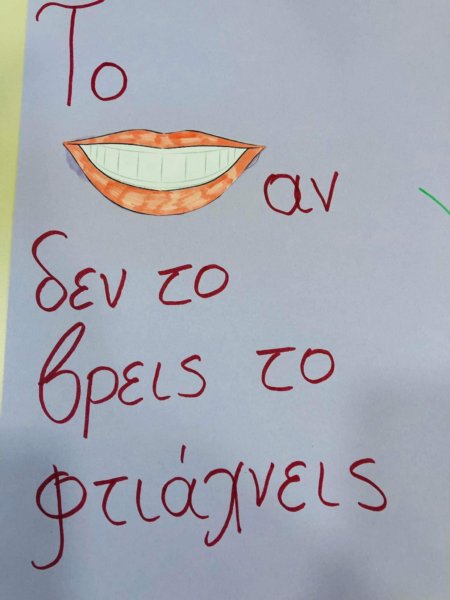 Το
αν
δεν το
βρεις το
φτιάχνεις